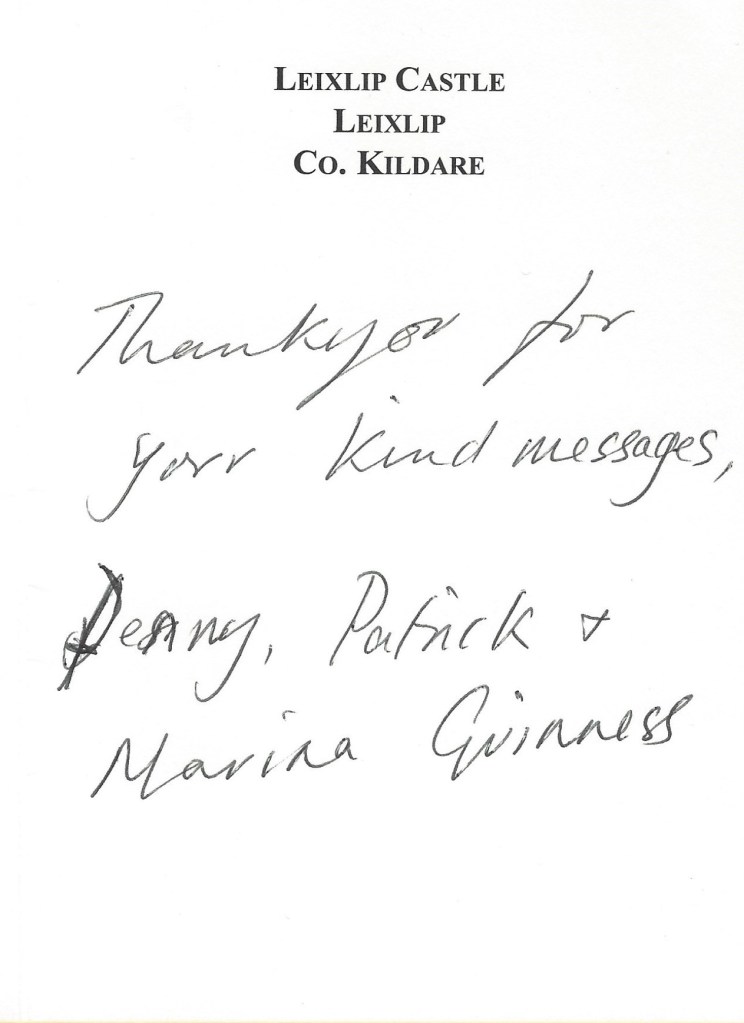 LEIXLIP CASTLE
LEIXLIP
CO. KILDARE
Thankyou for
your kind messages,
Penny, Patrick +
Marina Guinness